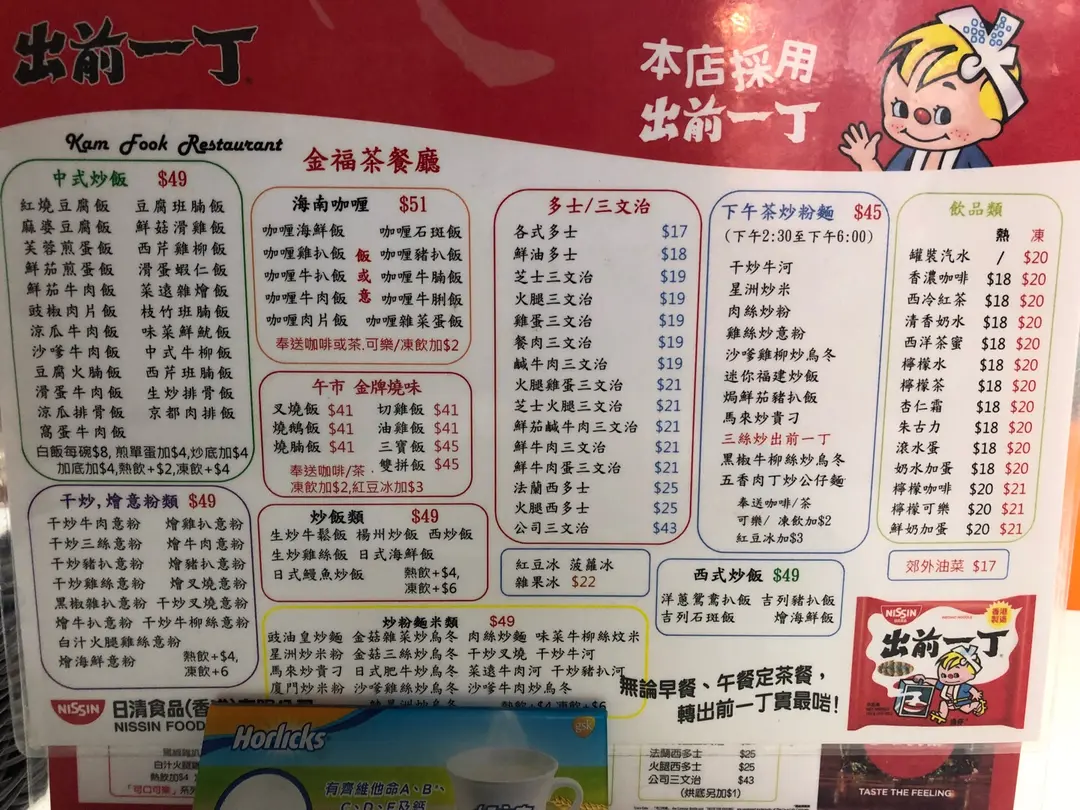 出前一丁
本店採用
出前一丁
Kam Fook Restaurant
金福茶餐廳
中式炒飯 $49
紅燒豆腐飯 豆腐班腩飯
麻婆豆腐飯 鮮菇滑雞飯
芙蓉煎蛋飯 西芹雞柳飯
鮮茄煎蛋飯 滑蛋蝦仁飯
鮮茄牛肉飯 菜遠雜燴飯
豉椒肉片飯 枝竹班腩飯
涼瓜牛肉飯 味菜鮮魷飯
沙嗲牛肉飯 中式牛柳飯
豆腐火腩飯 西芹班腩飯
滑蛋牛肉飯 生炒排骨飯
涼瓜排骨飯 京都肉排飯
窩蛋牛肉飯
白飯每碗$8, 煎單蛋加$4,炒底加$4
加底加$4,熱飲+$2,凍飲+$4
干炒,燴意粉類 $49
干炒牛肉意粉 燴雞扒意粉
干炒三絲意粉 燴牛肉意粉
干炒豬扒意粉 燴豬扒意粉
干炒雞絲意粉 燴叉燒意粉
黑椒雜扒意粉 干炒叉燒意粉
燴牛扒意粉 干炒牛柳絲意粉
白汁火腿雞絲意粉
燴海鮮意粉
熱飲+$4,
凍飲+6
海南咖喱 $51
咖喱海鮮飯 咖喱石斑飯
咖喱雞扒飯 咖喱豬扒飯
咖喱牛扒飯 咖喱牛腩飯
咖喱牛肉飯 咖喱牛脷飯
咖喱肉片飯 咖喱雜菜蛋飯
飯或意
奉送咖啡或茶.可樂/凍飲加$2
午市 金牌燒味
叉燒飯 $41 切雞飯 $41
燒鵝飯 $41 油雞飯 $41
燒腩飯 $41 三寶飯 $45
雙拼飯 $45
奉送咖啡/茶.
凍飲加$2,紅豆冰加$3
炒飯類 $49
生炒牛鬆飯 楊州炒飯 西炒飯
生炒雞絲飯 日式海鮮飯
日式鰻魚炒飯
熱飲+$4,
凍飲+$6
炒粉麵米類 $49
豉油皇炒麵 金菇雜菜炒烏冬 肉絲炒麵 味菜牛柳絲炆米
星洲炒米粉 金菇三絲炒烏冬 干炒叉燒 干炒牛河
馬來炒貴刁 日式肥牛炒烏冬 菜遠牛河 干炒豬扒河
廈門炒米粉 沙嗲雞絲炒烏冬 沙嗲牛肉炒烏冬
多士/三文治
各式多士 $17
鮮油多士 $18
芝士三文治 $19
火腿三文治 $19
雞蛋三文治 $19
餐肉三文治 $19
鹹牛肉三文治 $19
火腿雞蛋三文治 $21
芝士火腿三文治 $21
鮮茄鹹牛肉三文治 $21
鮮牛肉三文治 $21
鮮牛肉蛋三文治 $21
法蘭西多士 $25
火腿西多士 $25
公司三文治 $43
紅豆冰 菠蘿冰
雜果冰 $22
下午茶炒粉麵 $45
(下午2:30至下午6:00)
干炒牛河
星洲炒米
肉絲炒粉
雞絲炒意粉
沙嗲雞柳炒烏冬
迷你福建炒飯
焗鮮茄豬扒飯
馬來炒貴刁
三絲炒出前一丁
黑椒牛柳絲炒烏冬
五香肉丁炒公仔麵
奉送咖啡/茶
可樂/ 凍飲加$2
紅豆冰加$3
西式炒飯 $49
洋蔥鴛鴦扒飯 吉列豬扒飯
吉列石斑飯 燴海鮮飯
飲品類
熱 凍
罐裝汽水 / $20
香濃咖啡 $18 $20
西冷紅茶 $18 $20
清香奶水 $18 $20
西洋茶蜜 $18 $20
檸檬水 $18 $20
檸檬茶 $18 $20
杏仁霜 $18 $20
朱古力 $18 $20
滾水蛋 $18 $20
奶水加蛋 $18 $20
檸檬咖啡 $20 $21
檸檬可樂 $20 $21
鮮奶加蛋 $20 $21
郊外油菜 $17
無論早餐、午餐定茶餐,
轉出前一丁實最啱!
NISSIN
香港製造
出前一丁
NISSIN 日清食品(香
NISSIN FOOD
Horlicks
gsk
有齊維他命A、B、
C、D、E及鈣
白汁火腿雞
熱飲加$4
「可口可樂」系列
法蘭西多士 $25
火腿西多士 $25
公司三文治 $43
(烘底另加$1)
TASTE THE FEELING